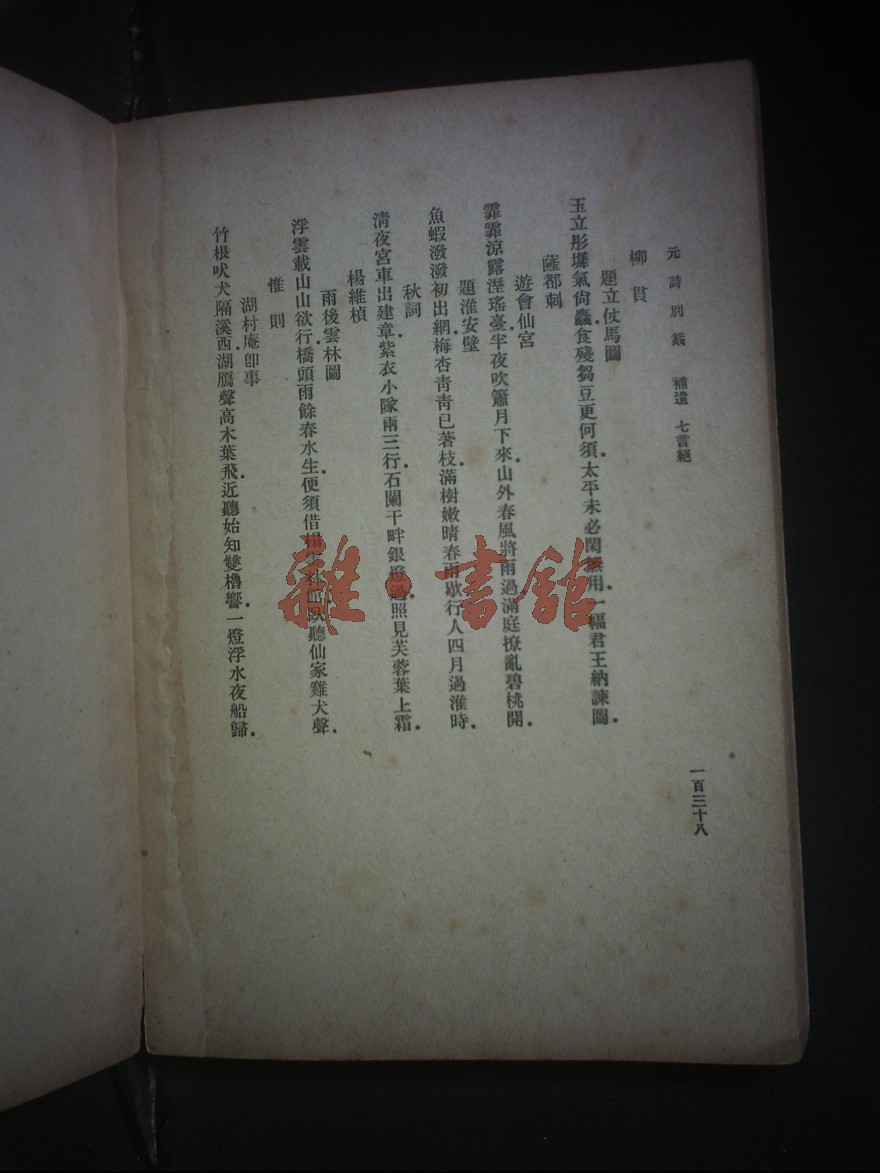 元詩別裁 補遺 七言絕
柳貫
題立仗馬圖
玉立彤墀氣尙麤.食殘芻豆更何須.太平未必閑無用.一幅君王納諫圖.
薩都剌
遊會仙宮
霏霏涼露溼瑤臺.半夜吹簫月下來.山外春風將雨過.滿庭撩亂碧桃開.
題淮安壁
魚蝦潑潑初出網.梅杏靑靑已著枝.滿樹嫩晴春雨歇.行人四月過淮時.
秋詞
淸夜宮車出建章.紫衣小隊兩三行.石闌干畔銀燈過.照見芙蓉葉上霜.
楊維楨
雨後雲林圖
浮雲載山山欲行.橋頭雨餘春水生.便須借館臥聽仙家雞犬聲.
惟則
湖村庵卽事
竹根吠犬隔溪西.湖鴈聲高木葉飛.近聽始知雙櫓響.一燈浮水夜船歸.
一百三十八
雜·書館